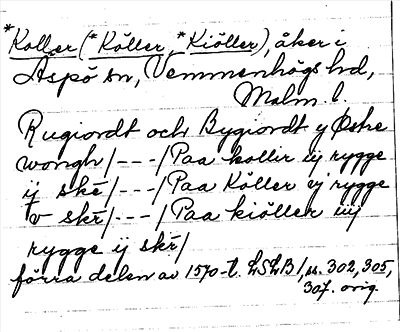 *Koller (*Köller, *Kiöller), åker i
Aspö sn, Vemmenhögs hd,
Malm. l.
Rugiordt och Bygiordt y Østre
wongh /---/ Paa kollir iij rygge
ij skē /---/ Paa Köller ij rygge
v skr̄ /---/ Paa kiöller iiij
rygge ij skr̄ /
förra delen av 1570-t. LSLB 1, ss. 302, 305,
307. orig.